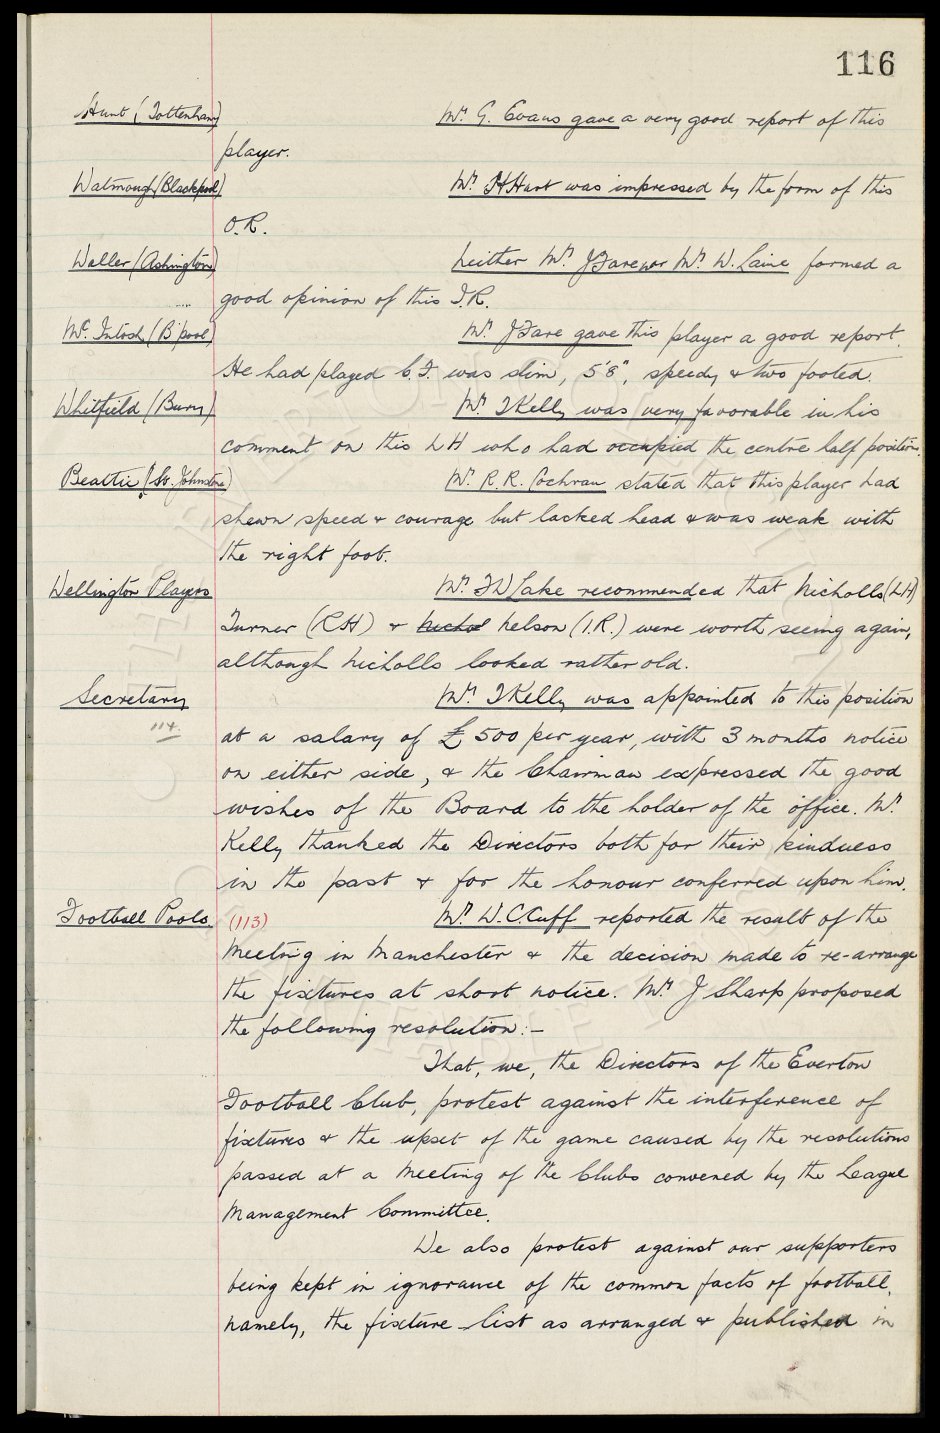 116
Hunt (Tottenham) Mr. G. Evans gave a very good report of this
player.
Watmough (Blackpool) Mr. H Hart was impressed by the form of this
O.R.
Waller (Ashington) Neither Mr. J Fare nor Mr. W. Laine formed a
good opinion of this I.R.
Mc. Intosh (B'pool) Mr. J Fare gave this player a good report.
He had played C.F. was slim, 5'8", speedy & two footed.
Whitfield (Bury) Mr. T Kelly was very favorable in his
comment on this LH who had occupied the centre half position.
Beattie (St. Johnstone) Mr. R.R. Cochran stated that this player had
shewn speed & courage but lacked head & was weak with
the right foot.
Wellington Players Mr. F W Lake recommended that Nicholls (LH)
Turner (RH) & Nichol Nelson (I.R.) were worth seeing again,
although Nicholls looked rather old.
Secretary Mr. T Kelly was appointed to this position
114. at a salary of £500 per year, with 3 months notice
on either side, & the Chairman expressed the good
wishes of the Board to the holder of the office. Mr.
Kelly thanked the Directors both for their kindness
in the past & for the honour conferred upon him.
Football Pools. (113) Mr. W.C. Cuff reported the result of the
Meeting in Manchester & the decision made to re-arrange
the fixtures at short notice. Mr. J Sharp proposed
the following resolution:-
That, we, the Directors of the Everton
Football Club, protest against the interference of
fixtures & the upset of the game caused by the resolutions
passed at a Meeting of the Clubs convened by the League
Management Committee.
We also protest against our supporters
being kept in ignorance of the common facts of football,
namely, the fixture-list as arranged & published in